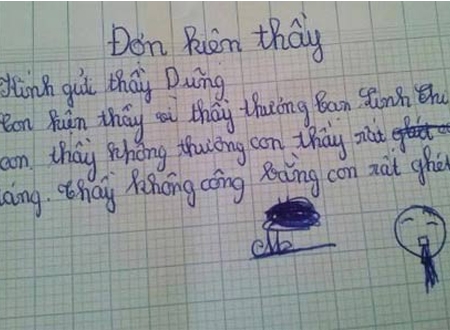 Đơn kiện thầy
Kính gửi thầy Dũng
Con kiện thầy vì thầy thương bạn Linh Chi
con. thầy không thương con thầy rất ghét
áng. thầy không công bằng con rất ghét